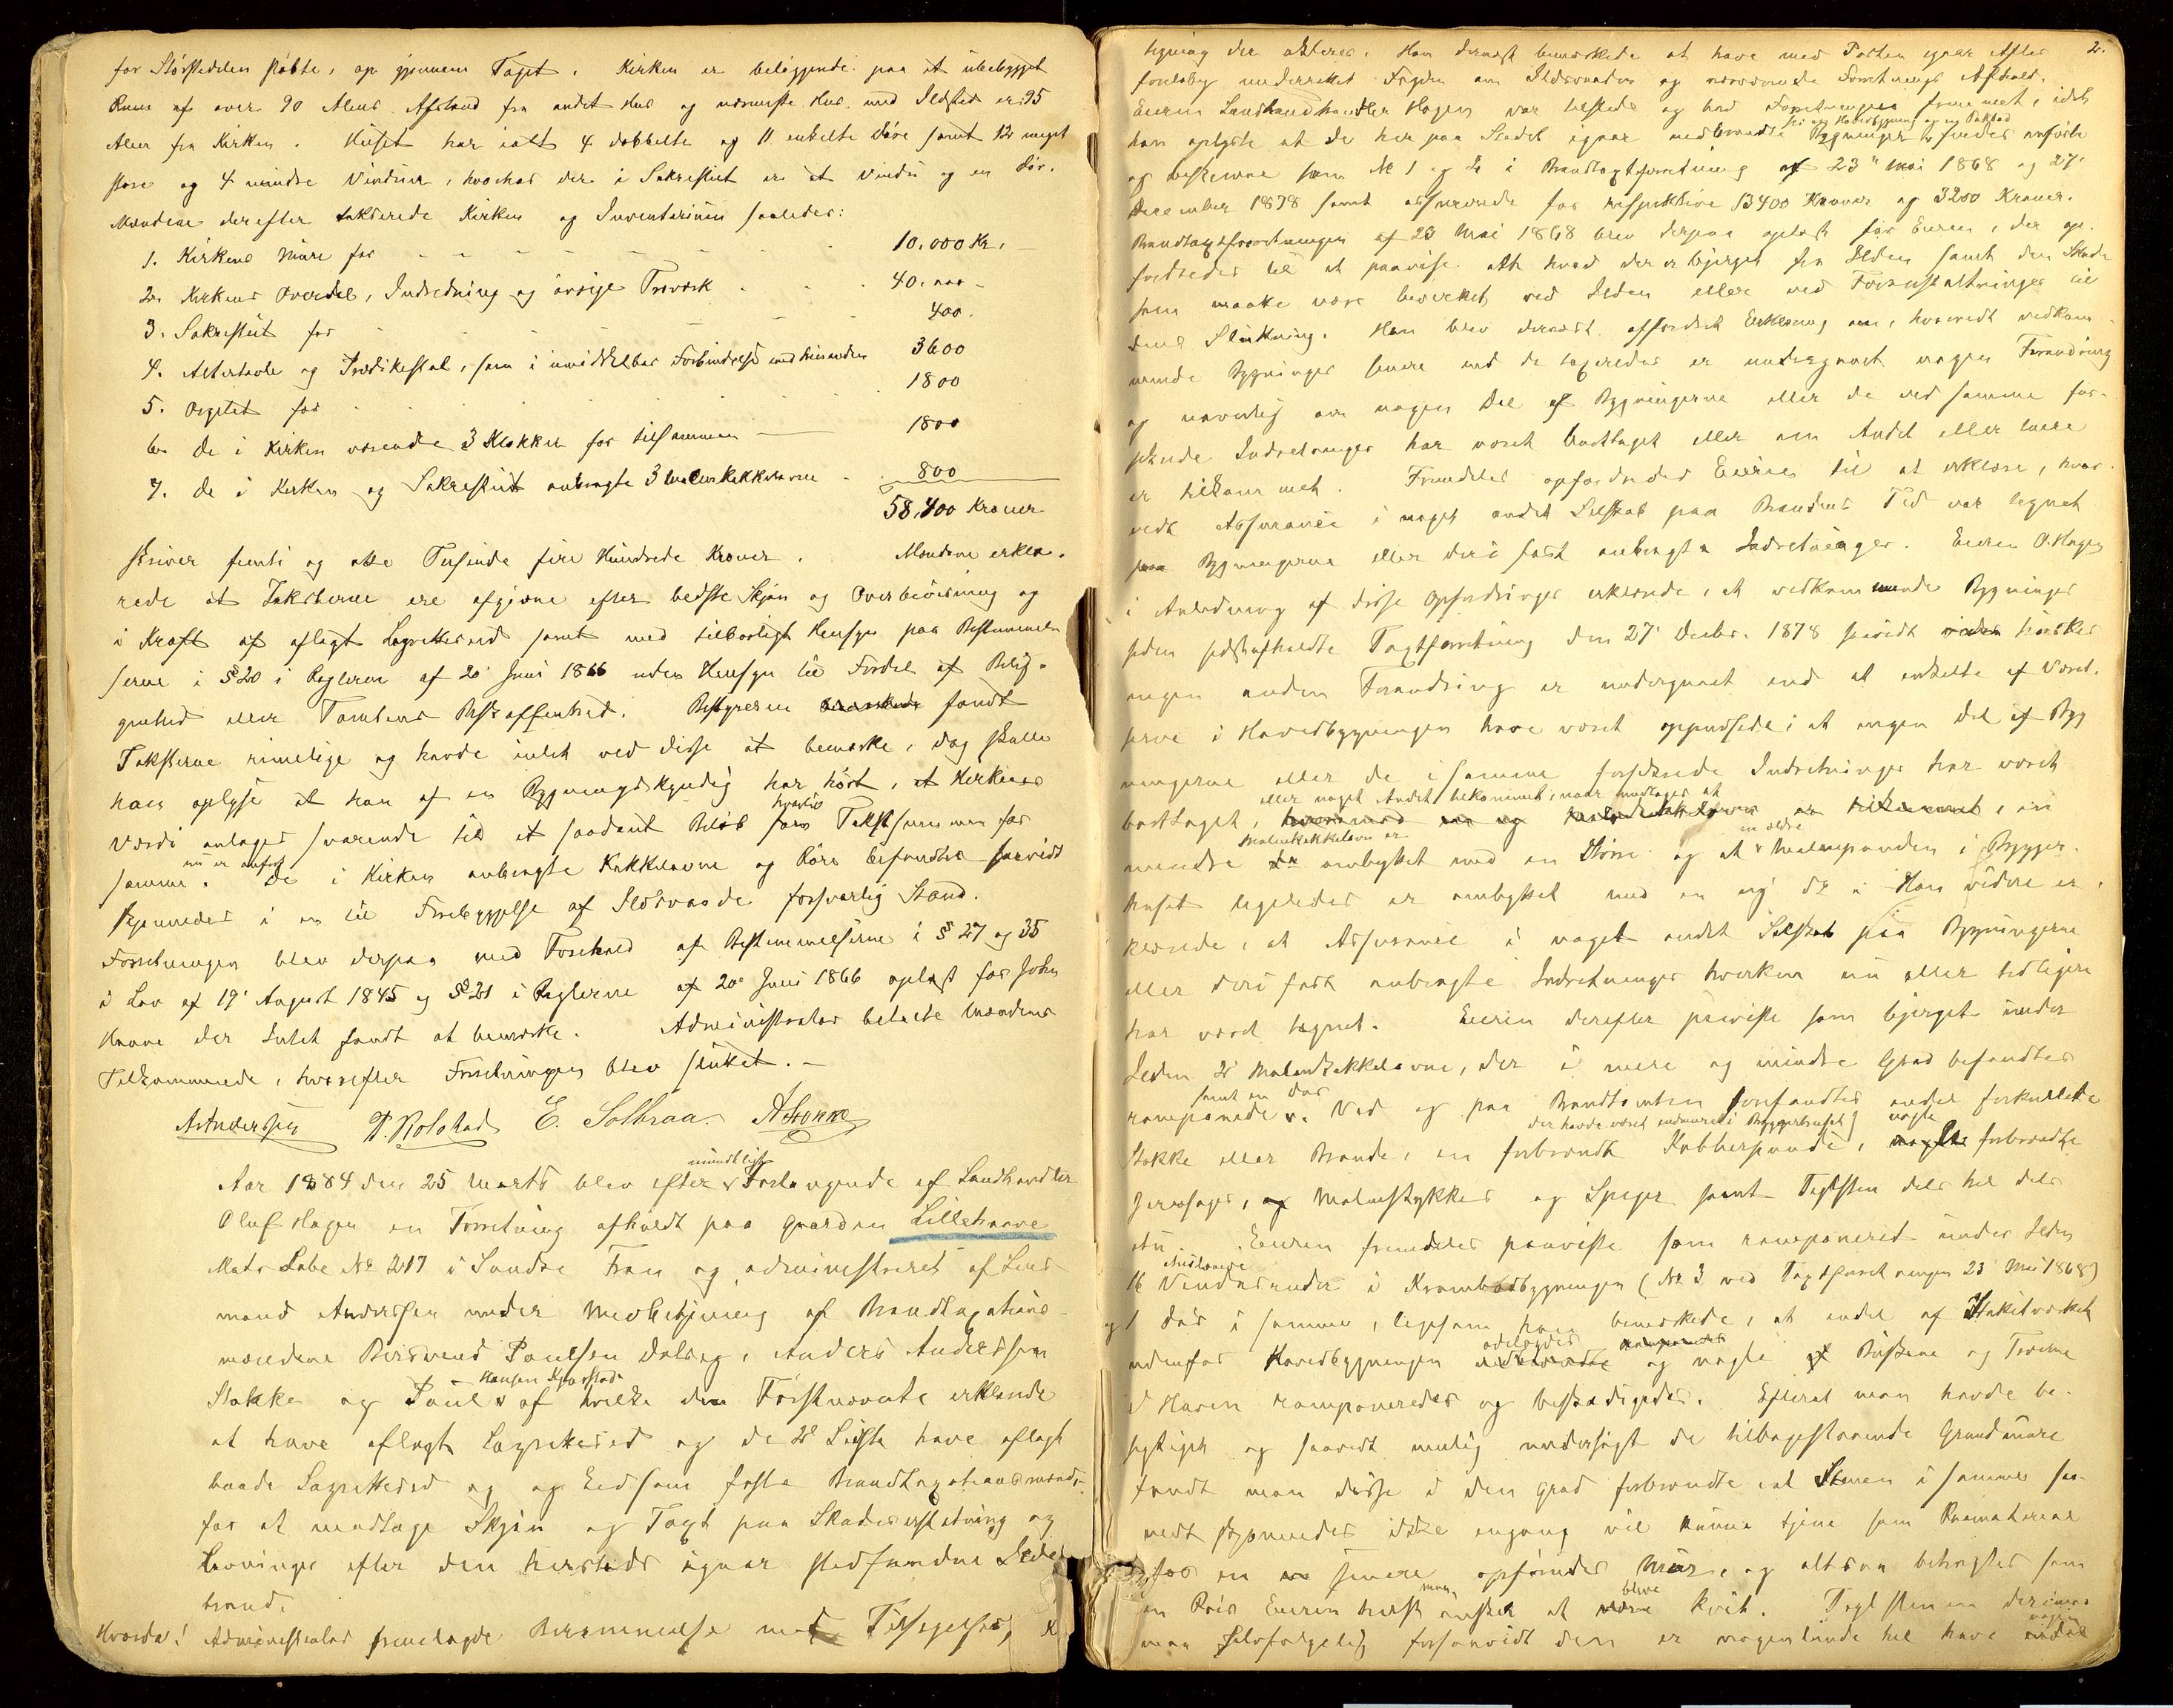 for Størstedelen støbte, op gjennem Taget. Kirken er beliggende paa et ubebygget
Rum af over 90 Alens Afstand fra andet Hus og nærmeste Hus med Ildsted er 95
Alen fra Kirken. Huset har ialt 4 dobbelte og 11 enkelte Døre samt 12 meget
store og 4 mindre Vinduer, hvorhos der i Sakrestiet er et Vindu og en Dør.
Mændene derefter takserede Kirken og Inventarium saaledes:
1. Kirkens Mure for 10,000 Kr.
2. Kirkens Overdel, Indredning og øvrige Træværk 40,000
3. Sakrestiet for 400.
4. Altertavle og Prædikestol, som i umiddelbar Forbindelse med hinanden 3600
5. Orgelet for 1800
6. De i Kirken værende 3 Klokker for tilsammen 1800
7. De i Kirken og Sakrestiet anbragte 3 Malmkakkelovne 800
58,400 Kroner
skriver femti og otte Tusinde fire Hundrede Kroner. Mændene erklæ-
rede at Taksterne ere afgivne efter bedste Skjøn og Overbevisning og
i Kraft af aflagt Lagrettesed samt med tilbørligt Hensyn paa Bestemmel-
serne i § 20 i Reglerne af 20 Juni 1866 uden Hensyn til Fordel af Belig-
genhed eller Tomtens Beskaffenhed. Bestyreren fandt
Taksterne rimelige og havde intet ved disse at bemærke, dog skulle
han oplyse at han af en Bygningskyndig har hørt, at Kirkens
hvortil
Værdi antages svarende til et saadant Beløb som Takstsummen for
nu er anført
samme. De i Kirken anbragte Kakkelovne og Rør befandtes saavidt
skjønnedes i en til Forebyggelse af Ildsvaade forsvarlig Stand.
Forretningen blev derpaa med Forehold af Bestemmelserne i § 27 og 35
i Lov af 19 August 1845 og § 21 i Reglerne af 20 Juni 1866 oplæst for John
Haave der Intet fandt at bemærke. Administrator betalte Mændenes
Tilkommende, hvorefter Forretningen blev sluttet.
A Andersen P. Rolstad E. Solbraa. A Stokke
mundtligt
Aar 1884 den 25 Marts blev efter Forlangende af Landhandler
Oluf Hagen en Forretning afholdt paa Gaarden Lillehaave
Matr Løbe No 217 i Søndre Fron og administreret af Lens-
mand Andersen under Medbetjening af Brandtaxations-
mændene Paulsen Anders Anderssen
Hansen
Stokke og Poul af hvilke den Førstnævnte erklærede
at have aflagt Lagrettesed og de 2 Sidste have aflagt
baade Lagrettesed og og Eed som faste Brandtaxationsmænd
for at modtage Skjøn og Taxt paa Skadeserstatning og
Levninger efter den hersteds igaar stedfundne Ildes-
brand.
Administrator fremlagde Berammelse med Tilsigelse,
2.
tegning der akteres. Han dernæst bemærkede at have med Posten igaar Aftes
foreløbig underrettet Fogden om Ildsvaaden og nærværende Forretnings Afhold.
Eieren Landhandler Hagen var tilstede og bad Forretningen fremmet, idet
han oplyste at de her paa Stedet igaar nedbrændte Bygninger findes anførte
og beskrevne som No 1 og 2 i Brandtaxtforretning af 23 Mai 1868 og 27
December 1878 samt assurerede for respektive 13400 Kroner og 3200 Kroner.
Brandtaxtforretningen af 23 Mai 1868 blev derpaa oplæst for Eieren, der op-
fordredes til at paavise Alt hvad der er bjerget fra Ilden samt den Skade
som maatte være bevirket ved Ilden eller ved Foranstaltninger til
dens Slukning. Han blev dernæst affordret Erklæring om, hvorvidt vedkom-
mende Bygninger senere end de taxeredes er undergaaet nogen Forandring
og navnlig om nogen Del af Bygningerne eller de ved samme for-
skende Indretninger har været borttaget eller om Andet eller mere
er tilkommet. Fremdeles opfordredes Eieren til at erklære, hvor-
vidt Assurance i noget andet Selskab paa Brandens Tid var tegnet
paa Bygningerne eller deri fast anbragte Indretninger. Eieren O. Hagen
i Anledning af disse Opfordringer erklærede, at vedkommende Bygninger
siden sidstafholdte Taxtforretning den 27 Decbr. 1878 saavidt huskes
ingen anden Forandring er undergaaet end at enkelte af Værel-
serne i Hovedbygningen have været oppudsede; at ingen Del af Byg-
ningerne eller de i samme forskende Indretninger har været
eller noget Andet tilkommet, naar undtages at
borttaget, en
Malmkakkelovn er
mindre ombyttet med en Større og at Malmpanden i Brygger-
huset ligeledes er ombyttet med en ny Han videre er-
klærede, at Assurance i noget andet Selskab paa Bygningerne
eller deri fast anbragte Indretninger hverken nu eller tidligere
har været tegnet. Eieren derefter paaviste som bjerget under
Ilden 2 Malmkakkelovne, der i mere og mindre Grad befandtes
samt en Dør
ramponerede. Ved og paa Brandtomten forefandtes endel forkullede
der havde været indmuret i Bryggerhuset nogle
Stokke eller Brande, en forbrændt Kobberpande, forbrændte
Jernsager, Malmstykker og Spiger samt Teglsten dels hel dels
itu. Eieren fremdeles paaviste som ramponeret under Ilden
16 Vinduesruder i Krambodbygningen (No 3 ved Taxtforretningen 23 Mai 1868)
og 1 Dør i samme, ligesom han bemærkede, at endel af Stakitværket
ødelagdes
udenfor Hovedbygningen og nogle af Buskene og Træerne
i Haven ramponeredes og beskadigedes. Efterat man havde be-
sigtiget og saavidt mulig undersøgt de tilbagestaaende Grundmure
fandt man disse i den Grad forbrændte at Stenen i samme saa-
vidt skjønnedes ikke engang vil kunne tjene som Raamateriale
for en senere opførendes Mur, og altsaa betragtes som
blive
en Røis Eieren helst ønsker at kvit. Teglstenen derimod
man selvfølgelig forsaavidt den er nogenlunde hel have